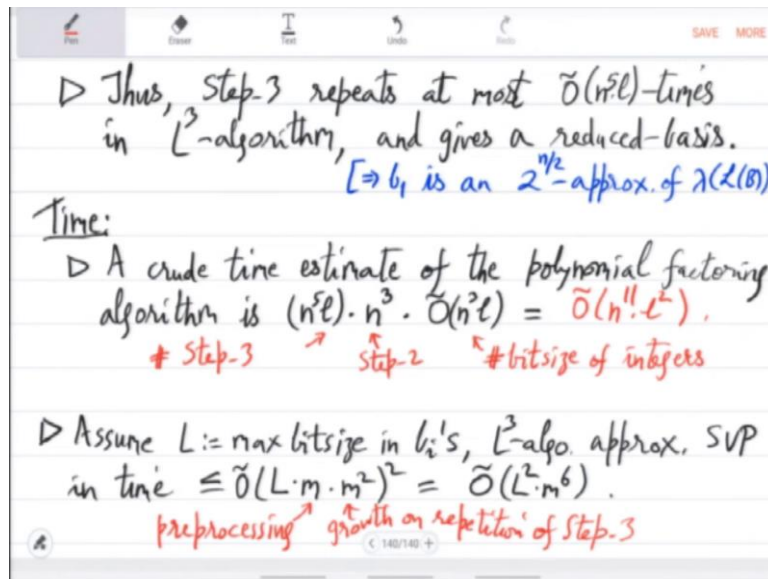 Pen Eraser Text Undo Redo SAVE MORE
▷ Thus, Step-3 repeats at most Õ(n⁵ℓ)-times
in L³-algorithm, and gives a reduced-basis.
[⇒ b₁ is an 2^(n/2)-approx. of λ(L(B))
Time:
▷ A crude time estimate of the polynomial factoring
algorithm is (n⁵ℓ)·n³·Õ(n³ℓ) = Õ(n¹¹·ℓ²).
# Step-3 ↗ Step-2 ↖ #bitsize of integers
▷ Assume L := max bitsize in bᵢ's, L³-algo. approx. SVP
in time ≤ Õ(L·m·m²)² = Õ(L²·m⁶).
preprocessing ↗ growth on repetition of Step-3
< 140/140 +